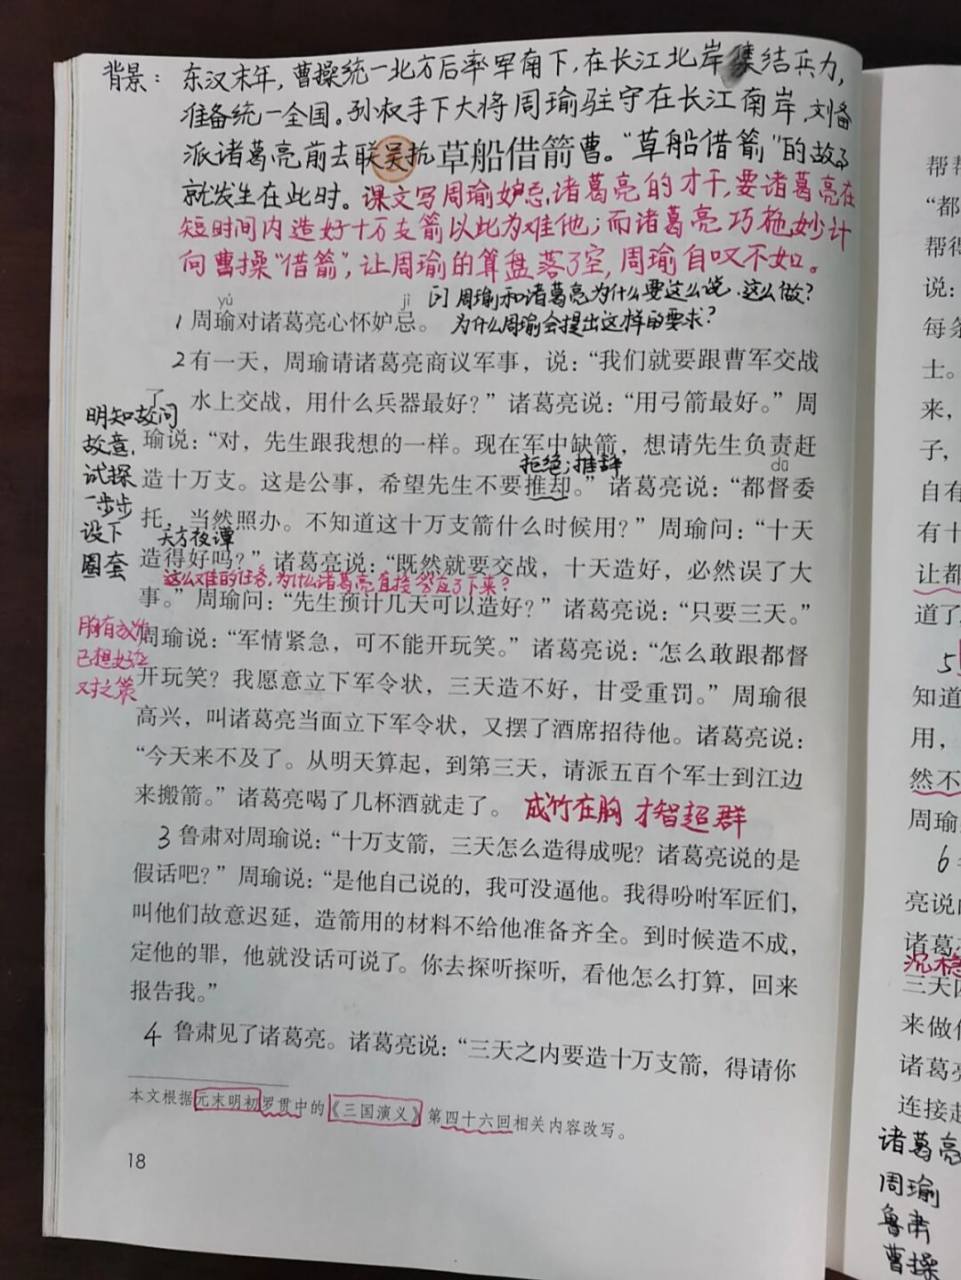 背景：东汉末年，曹操统一北方后率军南下，在长江北岸集结兵力，
准备统一全国。孙权手下大将周瑜驻守在长江南岸，刘备
派诸葛亮前去联吴抗草船借箭曹。“草船借箭”的故事
就发生在此时。课文写周瑜妒忌诸葛亮的才干，要诸葛亮在
短时间内造好十万支箭以此为难他；而诸葛亮巧施妙计
向曹操“借箭”，让周瑜的算盘落了空，周瑜自叹不如。
问周瑜和诸葛亮为什么要这么说、这么做？
yù jì
1 周瑜对诸葛亮心怀妒忌。 为什么周瑜会提出这样的要求？
2 有一天，周瑜请诸葛亮商议军事，说：“我们就要跟曹军交战
了。水上交战，用什么兵器最好？”诸葛亮说：“用弓箭最好。”周
明知故问
故意，
试探
一步步
设下
圈套
瑜说：“对，先生跟我想的一样。现在军中缺箭，想请先生负责赶
拒绝；推辞
dū
造十万支。这是公事，希望先生不要推却。”诸葛亮说：“都督委
托，当然照办。不知道这十万支箭什么时候用？”周瑜问：“十天
天方夜谭
造得好吗？”诸葛亮说：“既然就要交战，十天造好，必然误了大
这么难的任务，为什么诸葛亮直接答应了下来？
事。”周瑜问：“先生预计几天可以造好？”诸葛亮说：“只要三天。”
胸有成竹
已想好应
对之策
周瑜说：“军情紧急，可不能开玩笑。”诸葛亮说：“怎么敢跟都督
开玩笑？我愿意立下军令状，三天造不好，甘受重罚。”周瑜很
高兴，叫诸葛亮当面立下军令状，又摆了酒席招待他。诸葛亮说：
“今天来不及了。从明天算起，到第三天，请派五百个军士到江边
来搬箭。”诸葛亮喝了几杯酒就走了。 成竹在胸 才智超群
3 鲁肃对周瑜说：“十万支箭，三天怎么造得成呢？诸葛亮说的是
假话吧？”周瑜说：“是他自己说的，我可没逼他。我得吩咐军匠们，
叫他们故意迟延，造箭用的材料不给他准备齐全。到时候造不成，
定他的罪，他就没话可说了。你去探听探听，看他怎么打算，回来
报告我。”
4 鲁肃见了诸葛亮。诸葛亮说：“三天之内要造十万支箭，得请你
本文根据元末明初罗贯中的《三国演义》第四十六回相关内容改写。
18
帮
“都
帮得
说：
每条
士。
来，
子，
自有
有十
让都
道了
5
知道
用，
然不
周瑜
6
亮说
诸葛
沉稳
三天
来做
诸葛
连接
诸葛亮
周瑜
鲁肃
曹操